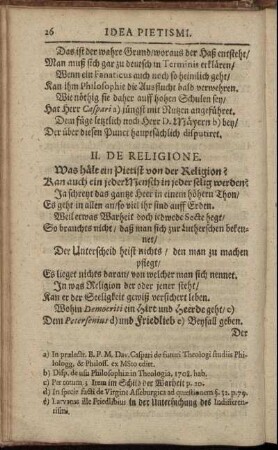 26 IDEA PIETISMI.
Das ist der wahre Grund/woraus der Haß entsteht/
Man muß sich gar zu deutsch in Terminis erklären/
Wenn ein Fanaticus auch noch so heimlich geht/
Kan ihm Philosophie die Ausflucht bald verwehren.
Wie nöthig sie daher auff hohen Schulen sey/
Hat Herr Caspari a) jüngst mit Nutzen angeführet.
Dem füge letzlich noch Herr D. Mäyern b) bey/
Der über diesen Punct hauptsächlich disputiret.
II. DE RELIGIONE.
Was hält ein Pietist von der Religion?
Kan auch ein jeder Mensch in jeder selig werden?
Ja schreyt das gantze Heer in einem höhern Thon/
Es geht in allen an/so viel ihr sind auff Erden.
Weil etwas Warheit doch idwede Secte hegt/
So brauchts nicht/ daß man sich zur Lutherschen beken-
net/
Der Unterscheid heist nichts/ den man zu machen
pflegt/
Es lieget nichts daran/ von welcher man sich nennet.
In was Religion der oder jener steht/
Kan er der Seeligkeit gewiß versichert leben.
Wohin Democriti ein Hirt und Heerde geht/ c)
Dem Petersenius d) und Friedlieb e) Beyfall geben.
Der
a) In praelect. B. P. M. Dav. Caspari de futuri Theologi studiis Phi-
lologg. & Philoss. ex MSto edit.
b) Disp. de usu Philosophiæ in Theologia, 1701. hab.
c) Per totum j. Item im Schild der Warheit p. 20.
d) In specie facti de Virgine Asseburgica ad quæstionem §. 52. p. 79.
e) Larvatus ille Friedlibius in der Untersuchung des Indifferen-
tismi.